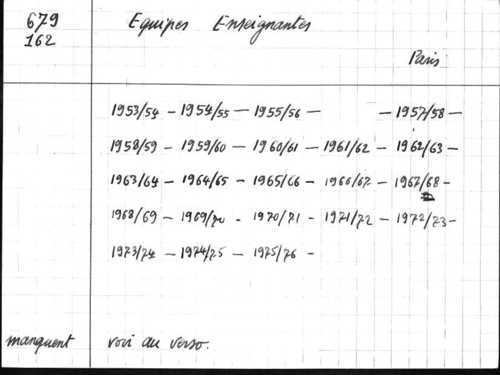 679 Equipes Enseignantes
162
Paris
1953/54 - 1954/55 - 1955/56 - - 1957/58 -
1958/59 - 1959/60 - 1960/61 - 1961/62 - 1962/63 -
1963/64 - 1964/65 - 1965/66 - 1966/67 - 1967/68 -
1968/69 - 1969/70 - 1970/71 - 1971/72 - 1972/73 -
1973/74 - 1974/75 - 1975/76 -
manquent voir au verso.